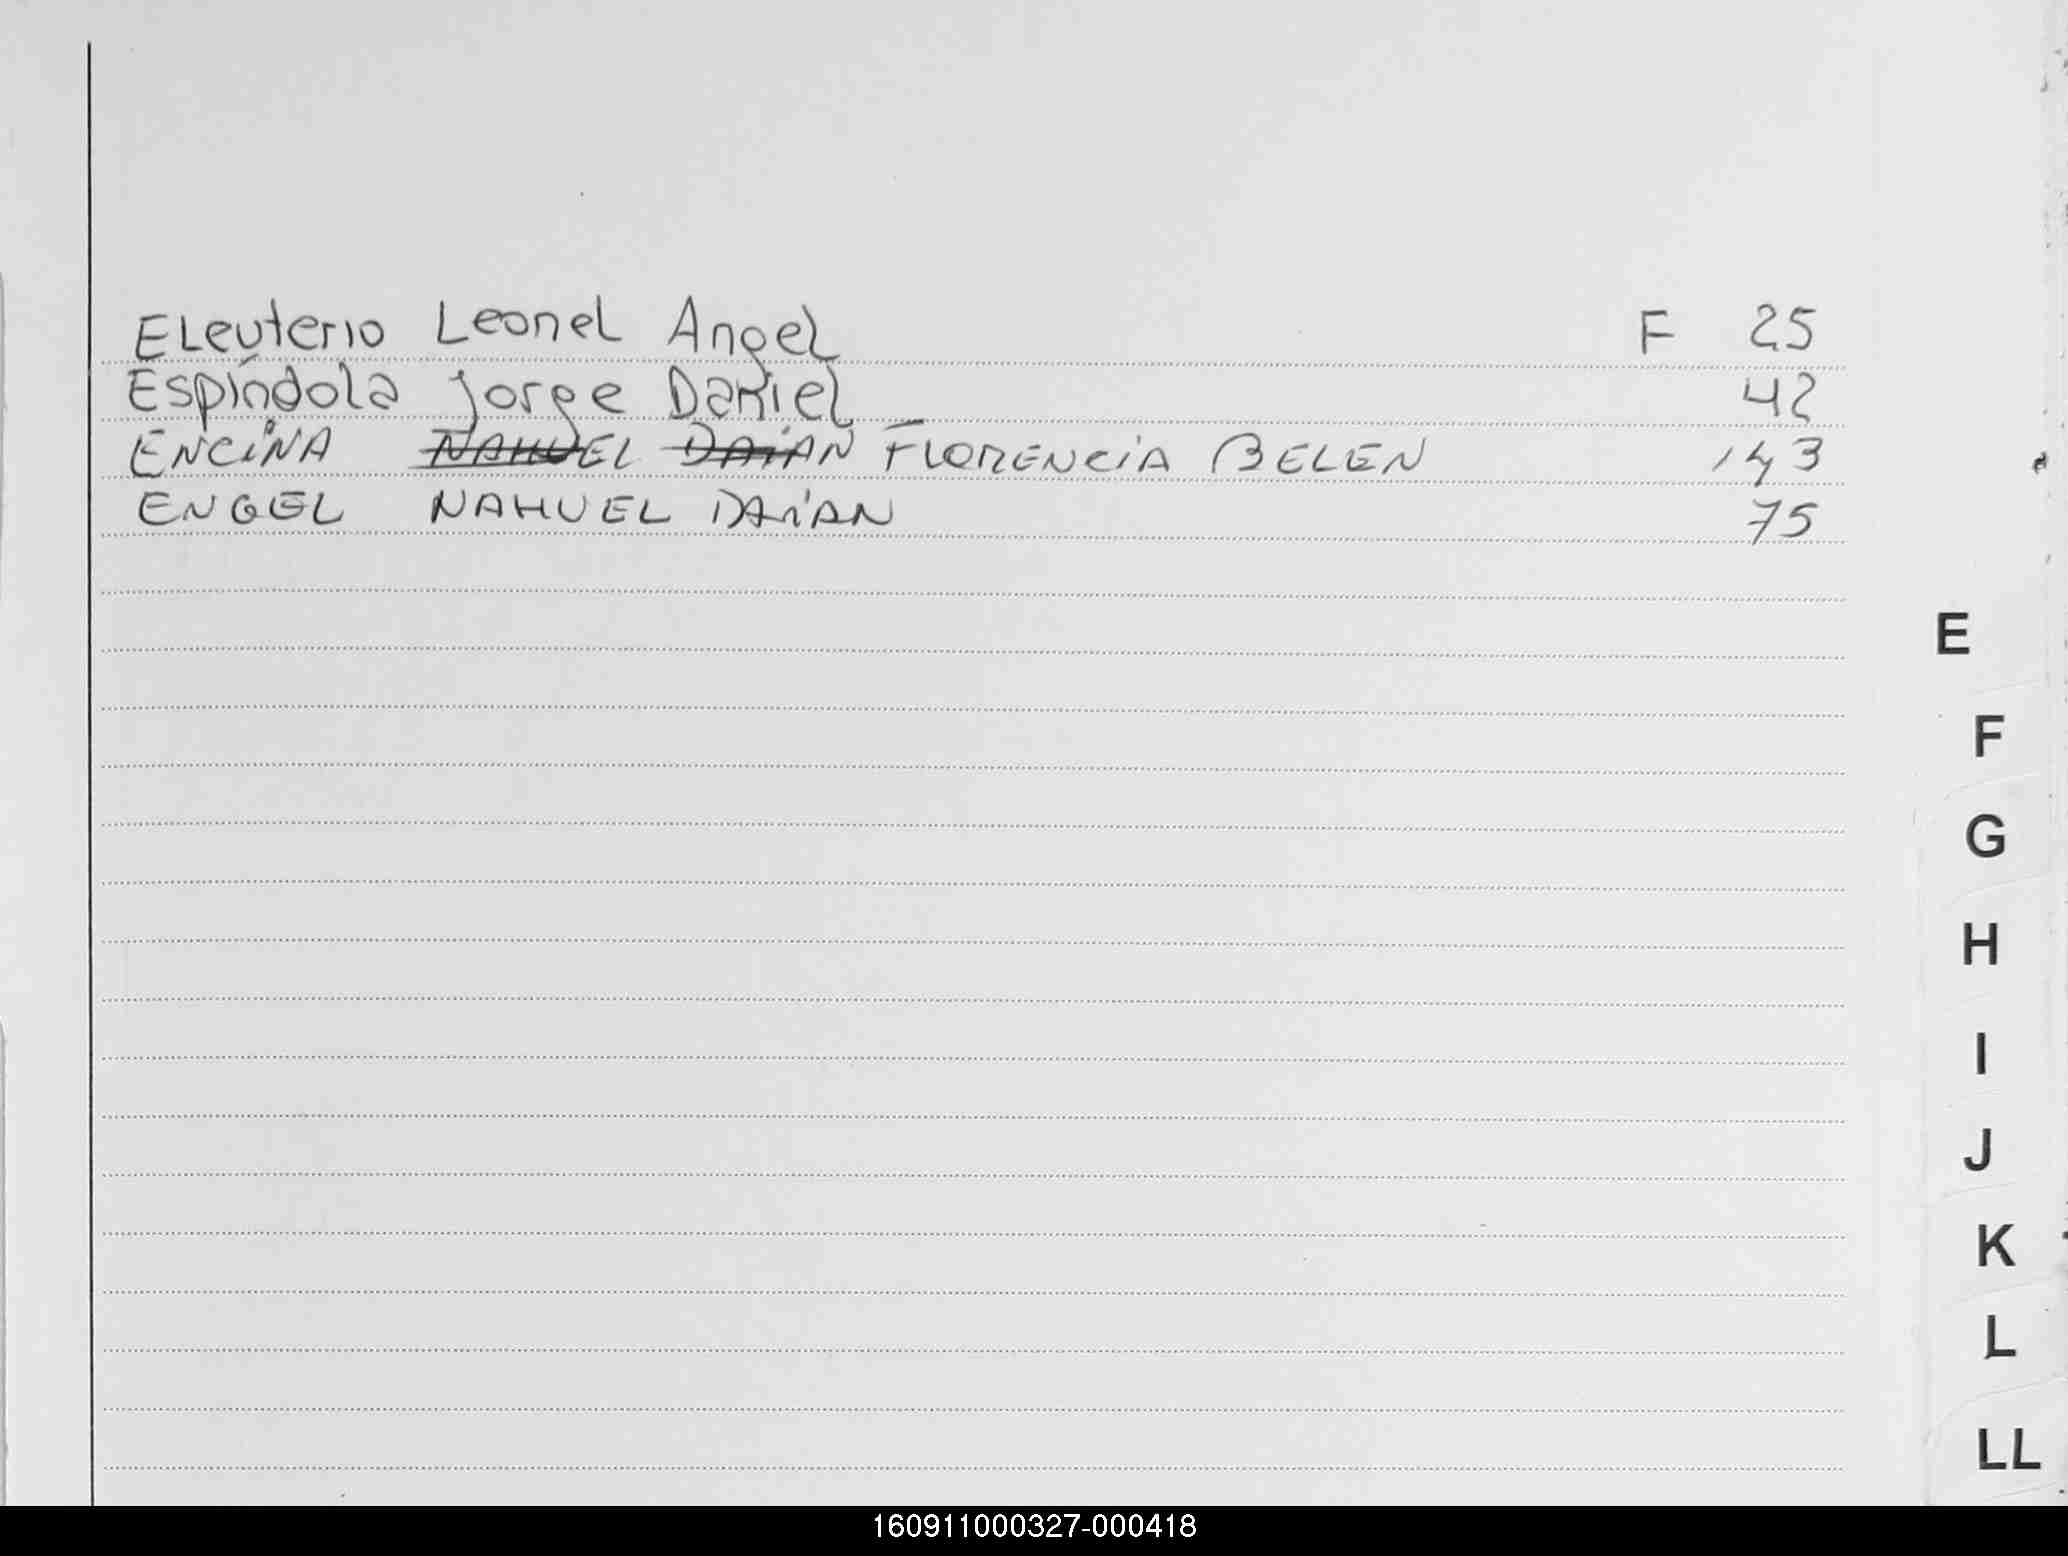 Eleuterio Leonel Angel F 25
Espíndola Jorge Daniel 42
ENCINA NAHUEL DAIAN FLORENCIA BELEN 143
ENGEL NAHUEL DAIAN 75
E
F
G
H
I
J
K
L
LL
160911000327-000418